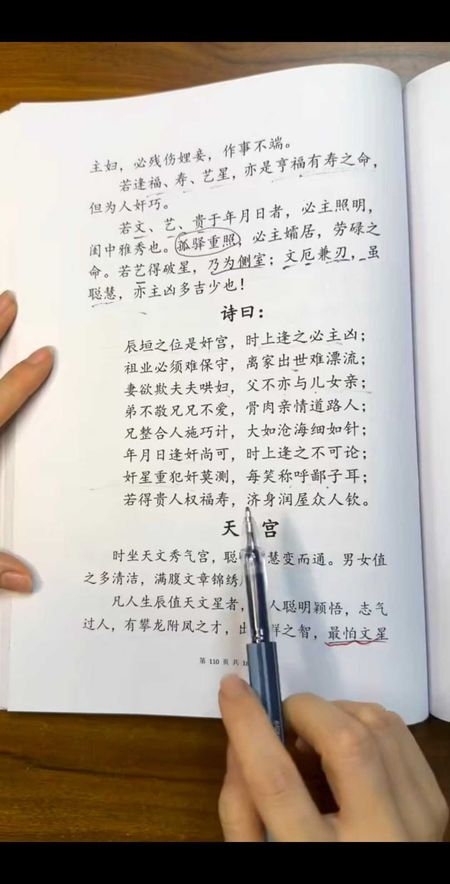 主妇，必残伤娌妾，作事不端。
若逢福、寿、艺星，亦是亨福有寿之命，
但为人奸巧。
若文、艺、贵于年月日者，必主照明，
闺中雅秀也。孤驿重照，必主孀居，劳碌之
命。若艺得破星，乃为侧室；文厄兼刃，虽
聪慧，亦主凶多吉少也！
诗曰：
辰垣之位是奸宫，时上逢之必主凶；
祖业必须难保守，离家出世难漂流；
妻欲欺夫夫哄妇，父不亦与儿女亲；
弟不敬兄兄不爱，骨肉亲情道路人；
兄整合人施巧计，大如沧海细如针；
年月日逢奸尚可，时上逢之不可论；
奸星重犯奸莫测，每笑称呼鄙子耳；
若得贵人权福寿，济身润屋众人钦。
天 宫
时坐天文秀气宫，聪 慧变而通。男女值
之多清洁，满腹文章锦绣
凡人生辰值天文星者， 人聪明颖悟，志气
过人，有攀龙附凤之才，出 群之智，最怕文星
第 110 页 共